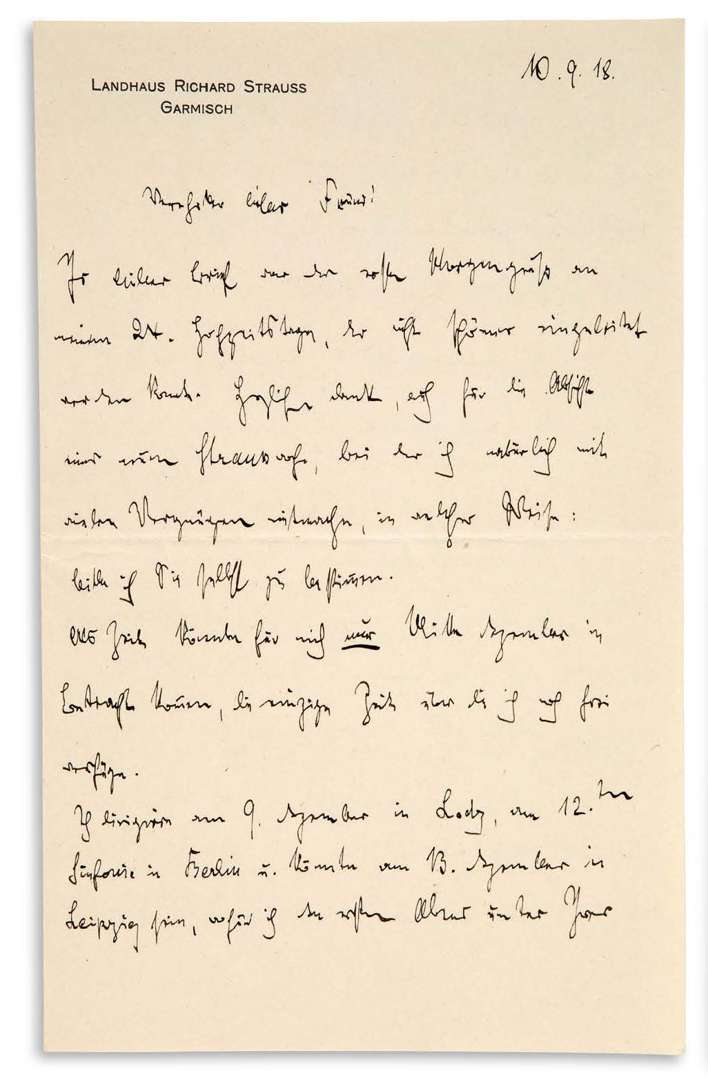 LANDHAUS RICHARD STRAUSS
GARMISCH
10. 9. 18.
Verehrter lieber Freund!
Ihr lieber Brief war der erste Morgengruß an
meinem 24. Hochzeitstage, der nicht schöner eingeleitet
werden konnte. Herzlichen Dank, auch für die Absicht
einer neuen Strausswoche, bei der ich natürlich mit
vielem Vergnügen mitmache, in welcher Weise:
bitte ich Sie selbst zu bestimmen.
Als Zeit könnte für mich nur Mitte Dezember in
Betracht kommen, die einzige Zeit über die ich noch frei
verfüge.
Ich dirigiere am 9. Dezember in Lodz, am 12.ten
Sinfonie in Berlin u. könnte am 13. Dezember in
Leipzig sein, wofür ich den ersten Abend unter Ihrer